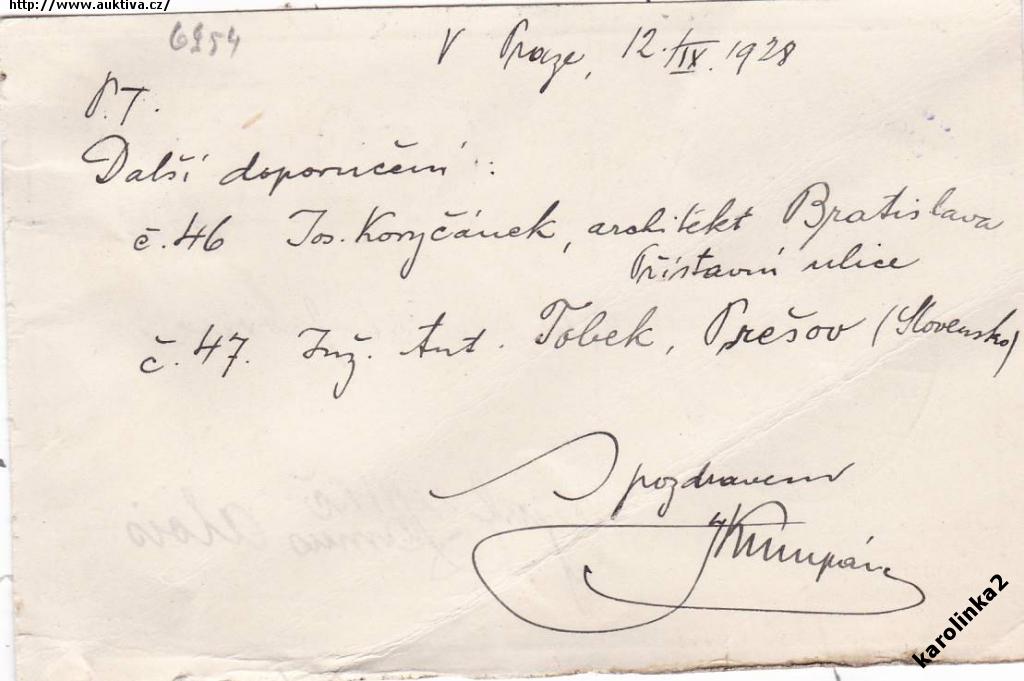 http://www.auktiva.cz/
6254
V Praze, 12./IX. 1928
P.T.
Další doporučení:
č. 46 Jos. Koryčánek, architékt Bratislava
Přístavní ulice
č. 47. Inž. Ant. Tobek, Prešov (Slovensko)
S pozdravem
karolinka2